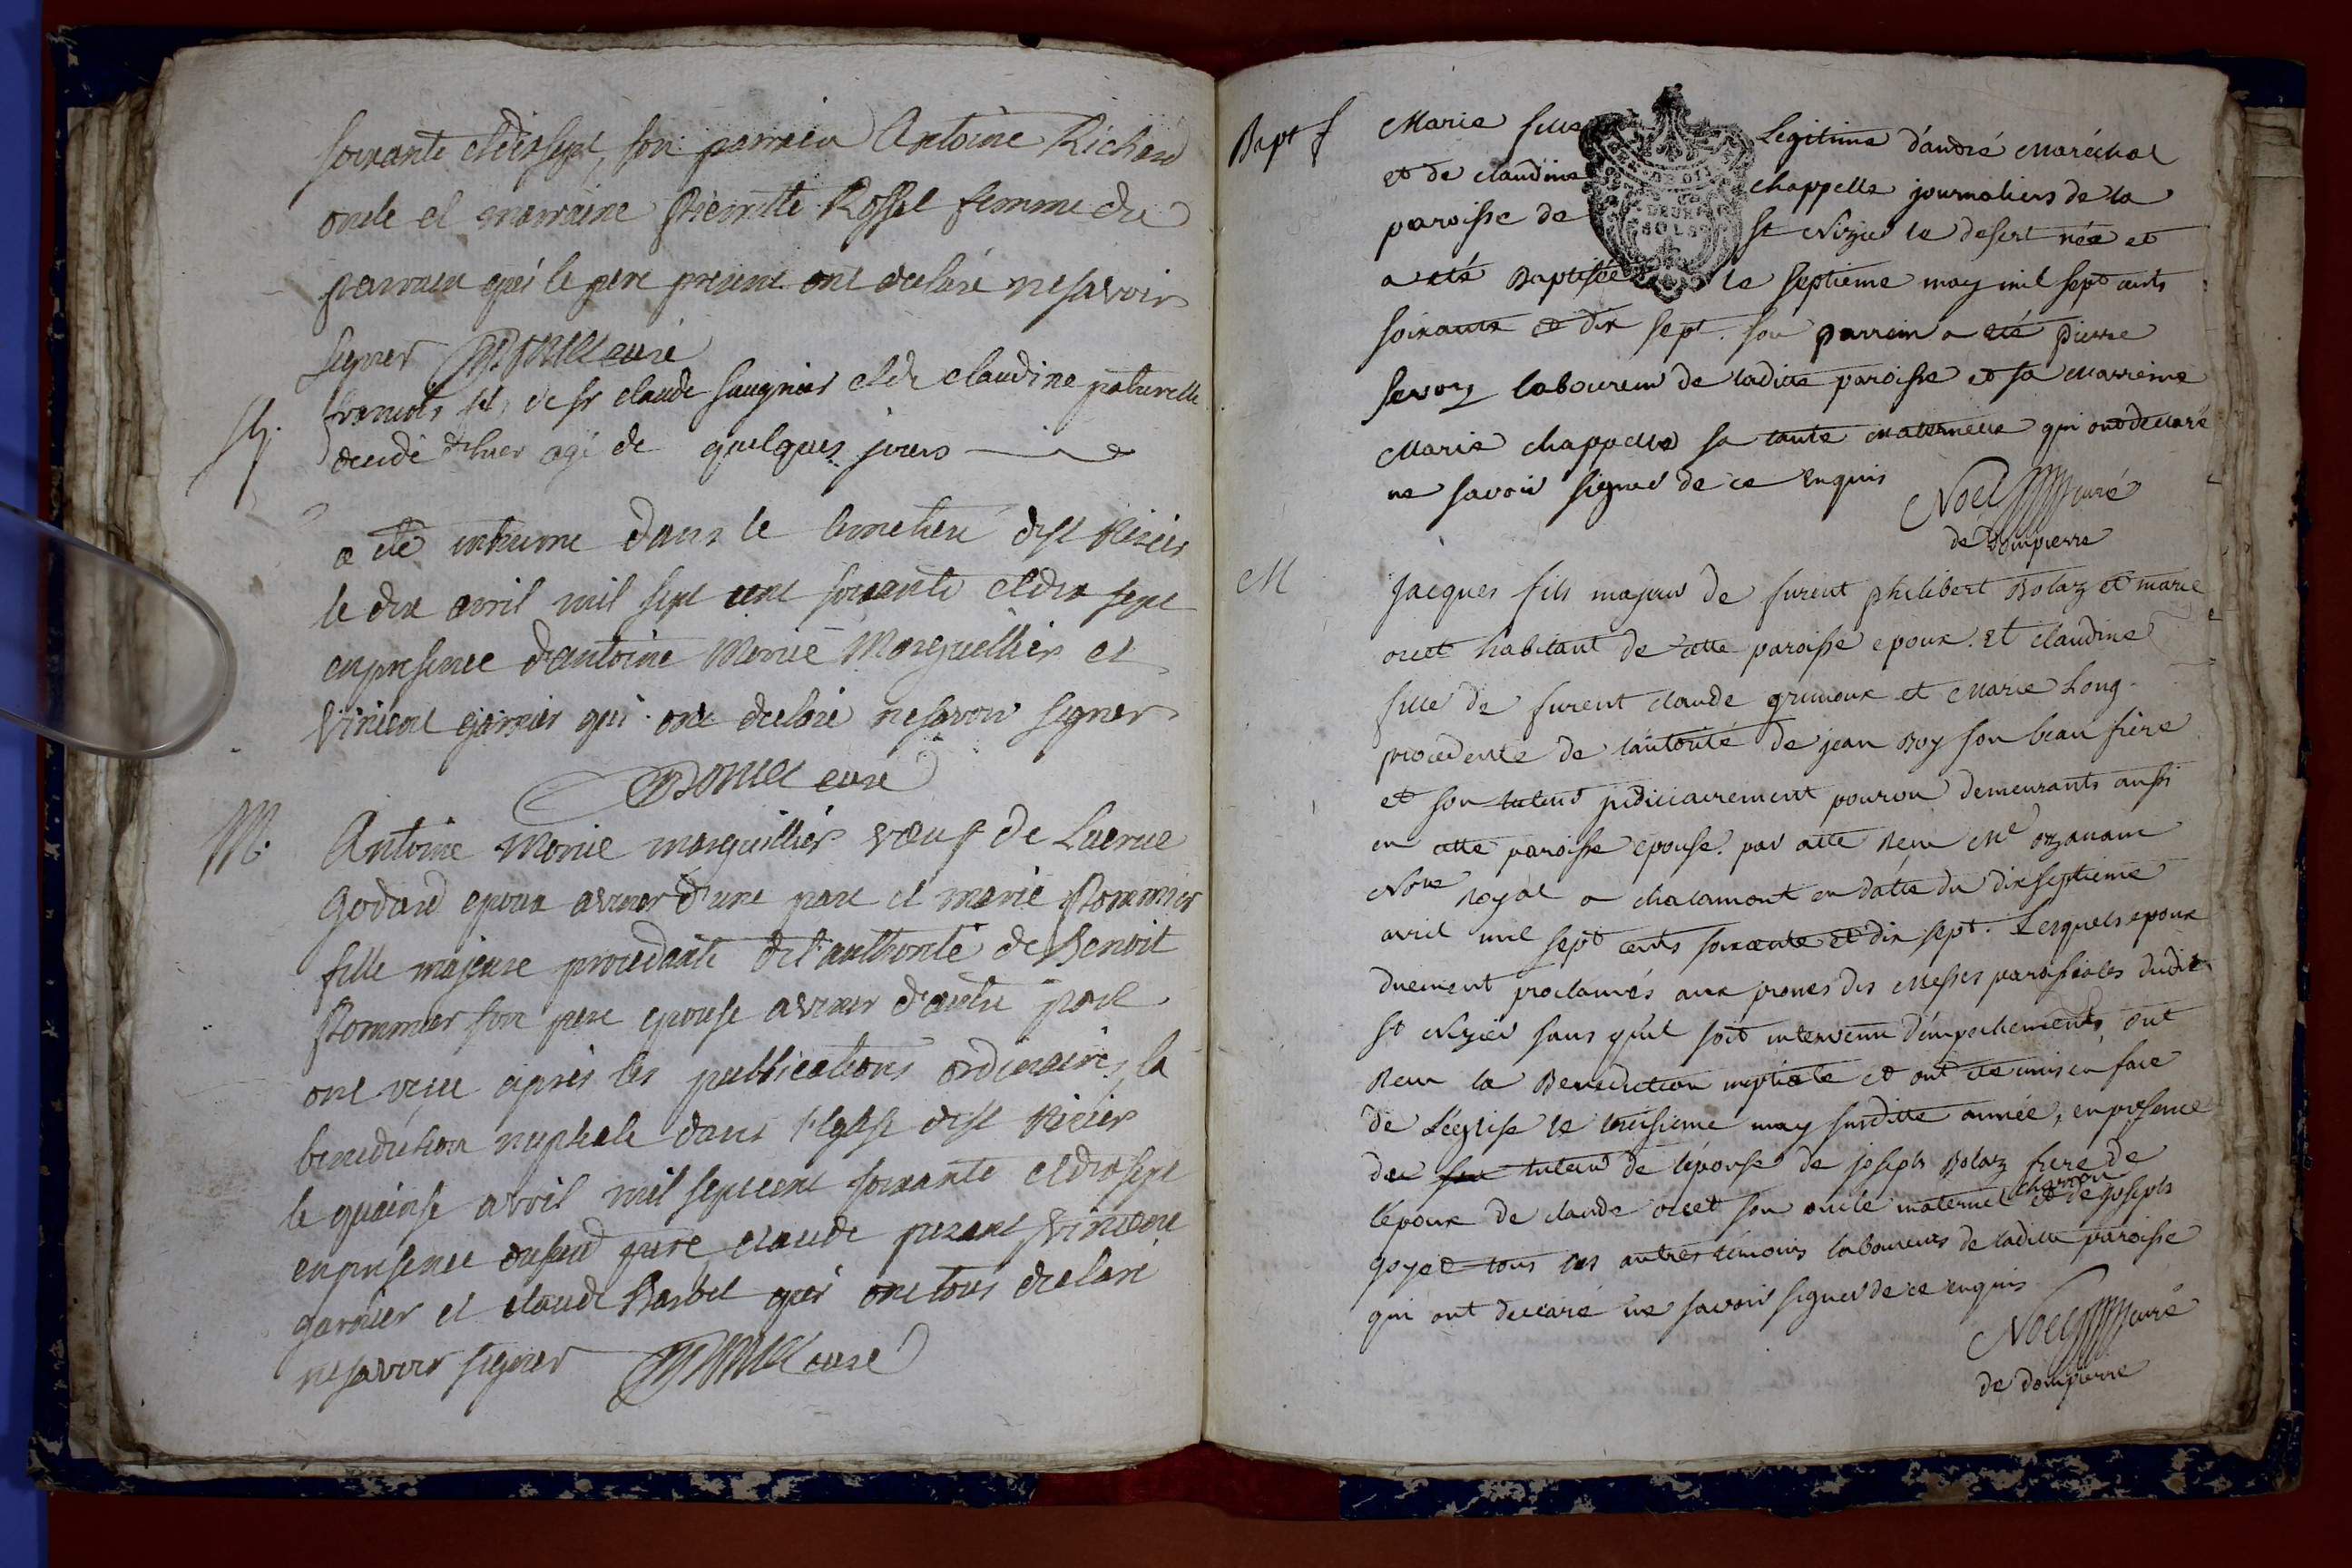 soixante et dix sept, son parrain Antoine Richard
oncle et marraine Pierrette Rossel femme du
parrain qui le pere present ont declaré ne savoir
signer curé
Sep.
francois fils de sr claude saugnier et de claudine paturelle
decedé d'hier agé de quelques jours
a ete inhumé dans le cimetiere de st Nizier
le dix avril mil sept cent soixante et dix sept
en presence d'antoine Monié Marguellier et
Vincent garnier qui ont declaré ne savoir signer
curé
M.
Antoine Monié marguillier veuf de
Godard epoux avenir d'une part et marie Pommier
fille majeure procedante de l'authorité de Benoit
Pommier son pere epouse avenir d'autre part
ont reçu après les publications ordinaires la
benediction nuptiale dans l'eglise de st Nizier
le quinse avril mil sept cent soixante et dix sept
en presence dusud pere claude perard Vincent
garnier et claude Barbet qui ont tous declaré
ne savoir signer curé
Bapt f
Marie fille Legitime d'andré Maréchal
et de claudine chappelle journaliers de la
paroisse de St Nizier le desert née et
a eté Baptisée le septieme may mil sept cents
soixante et dix sept. son parrein a eté pierre
sevoz laboureur de laditte paroisse et sa marreine
Marie chappelle sa tante maternelle qui ont declaré
ne savoir signer de ce Enquis
Noel curé
de Dompierre
M
Jacques fils majeur de furent philibert Bolaz et marie
ocet habitant de cette paroisse epoux. Et claudine
fille de furent claude grumoux et Marie Long
procedente de l'autorité de jean Boy son beau frère
et son tuteur judiciairement pourvu demeurants aussi
en cette paroisse epouse. par acte Reçu Me ozanam
Nore royal a chalamont en datte du dixseptieme
avril mil sept cents soixante et dix sept. Lesquels epoux
duement proclamés aux prones des Messes paroissiales dudit
St Nizier sans qu'il soit intervenu d'empechements, ont
Reçu la Benediction nuptiale et ont eté unis en face
de L'église le treisieme may susditte année, en presence
du son tuteur de l'epouse de joseph Bolaz frere de
l'epoux de claude ocet son oncle maternel charron et de joseph
goyet tous les autres témoins laboureurs de laditte paroisse
qui ont declaré ne savoir signer de ce enquis
Noel curé
de dompierre